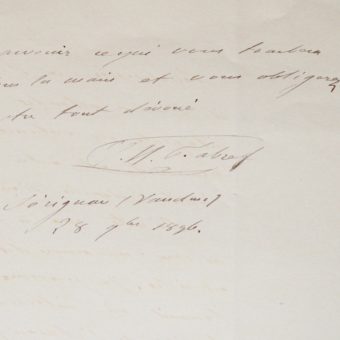 ce qui vous tombera
la main et vous obligerez
tout dévoué
J. H. Fabre
Sérignan (Vaucluse)
28 9bre 1896.